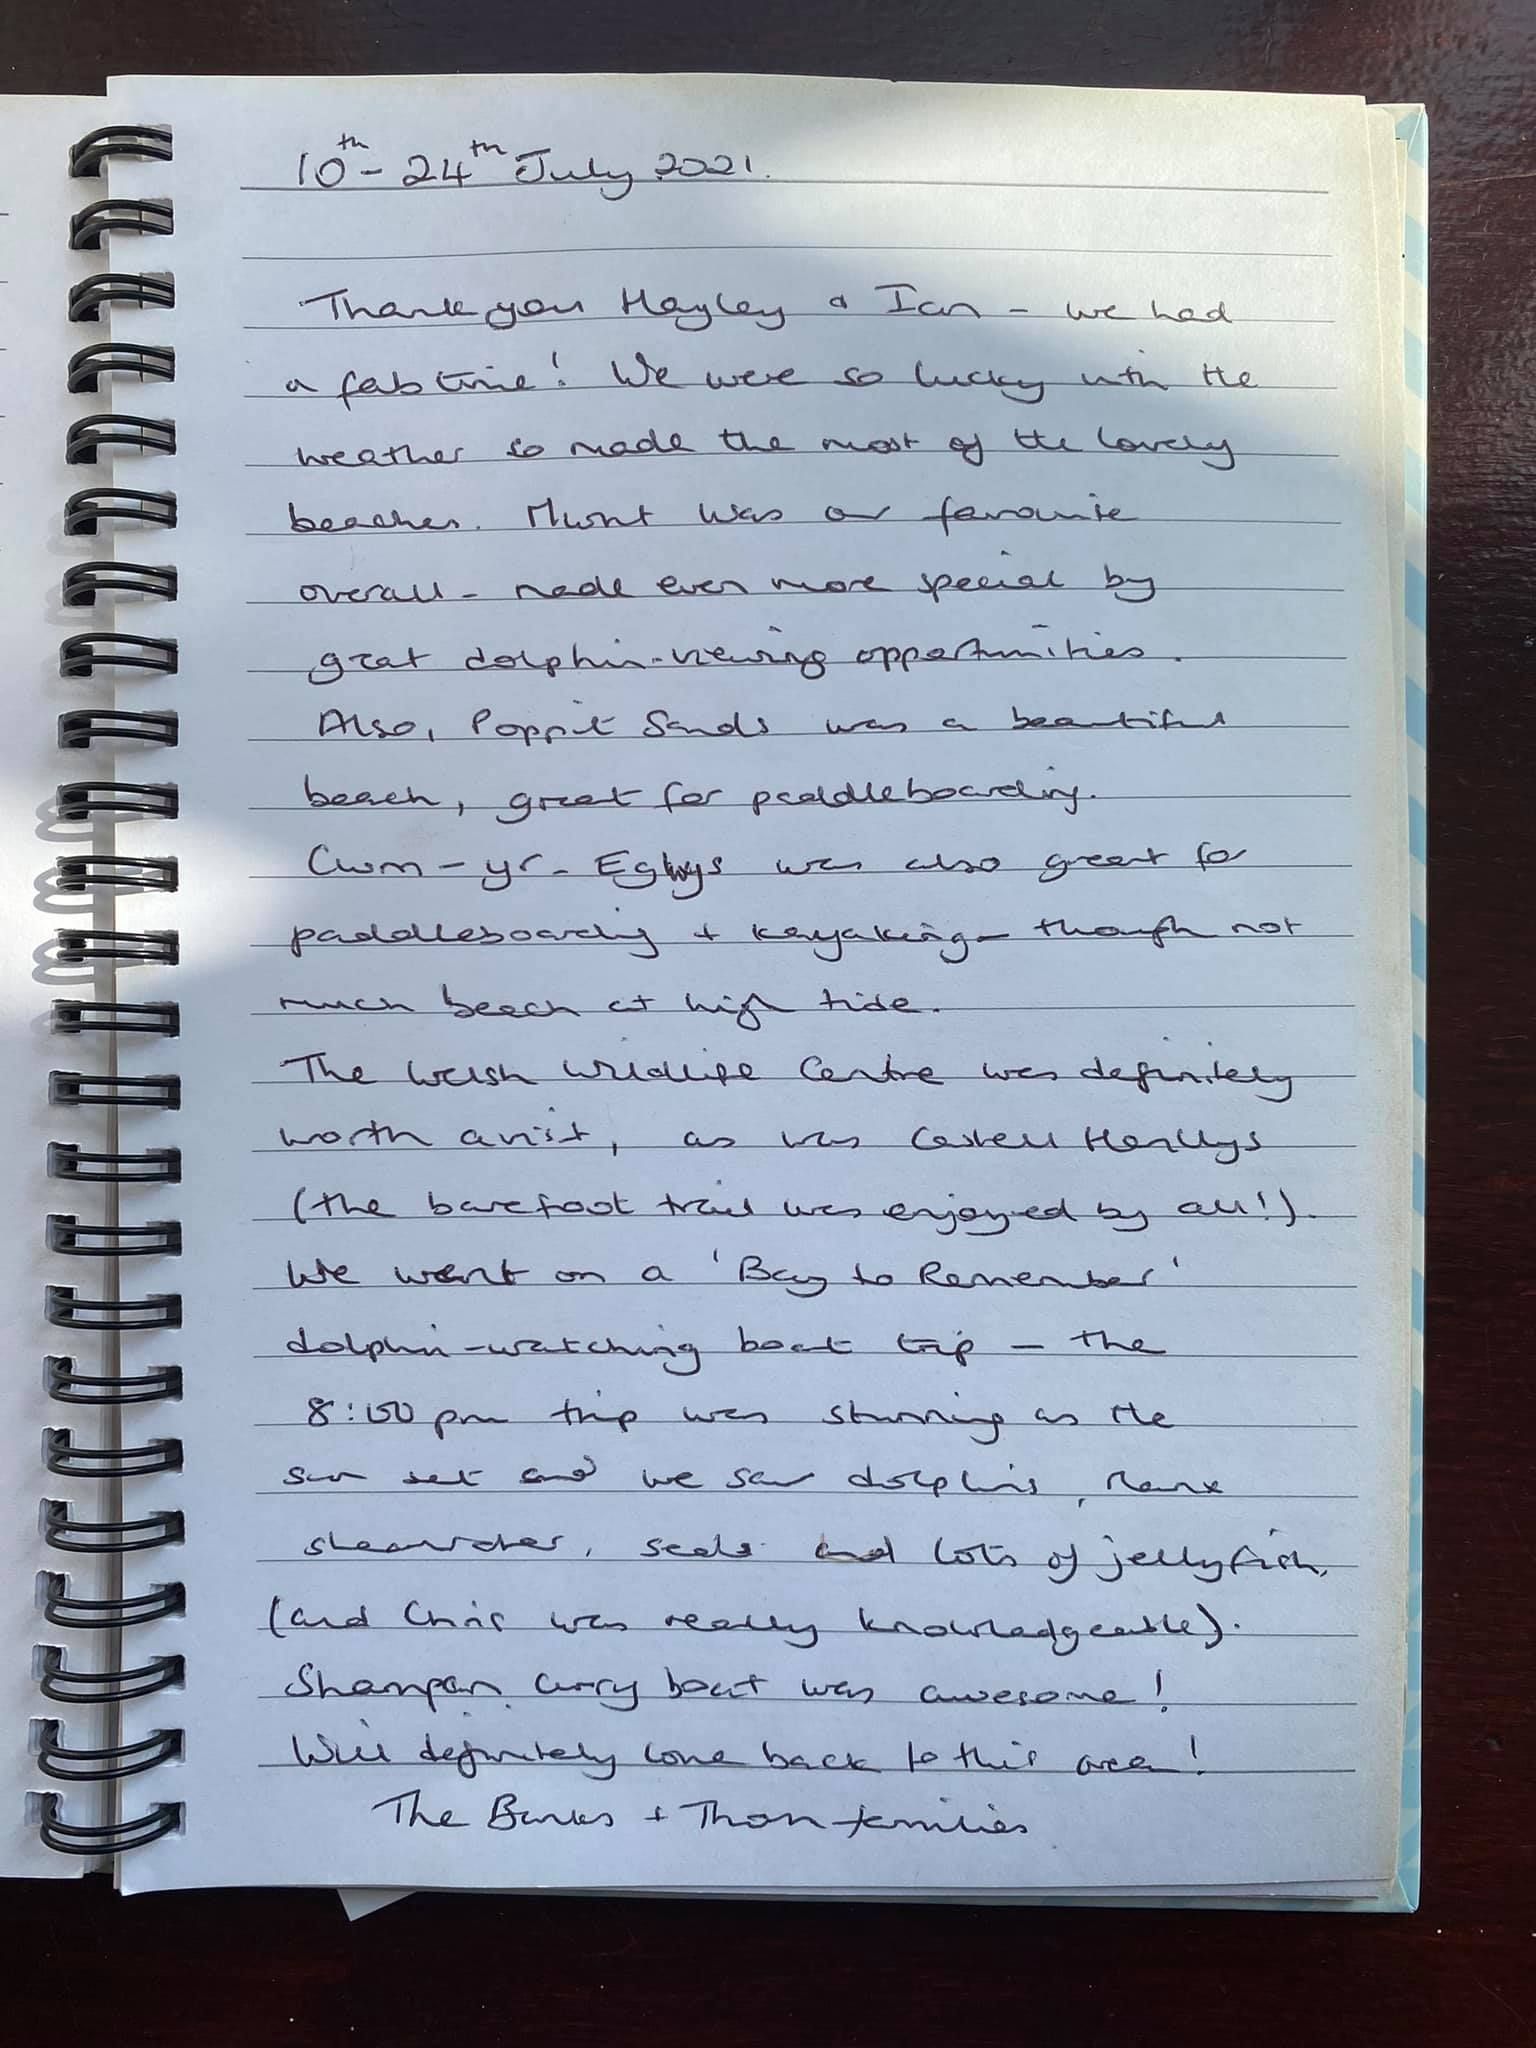 10th - 24th July 2021.
Thank you Hayley & Ian - we had
a fab time! We were so lucky with the
weather so made the most of the lovely
beaches. Mwnt was our favourite
overall - made even more special by
great dolphin-viewing opportunities.
Also, Poppit Sands was a beautiful
beach, great for paddleboarding.
Cwm-yr-Eglwys was also great for
paddleboarding + kayaking - though not
much beach at high tide.
The Welsh Wildlife Centre was definitely
worth a visit, as was Castell Henllys
(the barefoot trail was enjoyed by all!).
We went on a 'Bay to Remember'
dolphin-watching boat trip - the
8:00 pm trip was stunning as the
sun set and we saw dolphins, Manx
shearwater, seals and lots of jellyfish,
(and Chris was really knowledgeable).
Shampan curry boat was awesome!
Will definitely come back to this area!
The + families